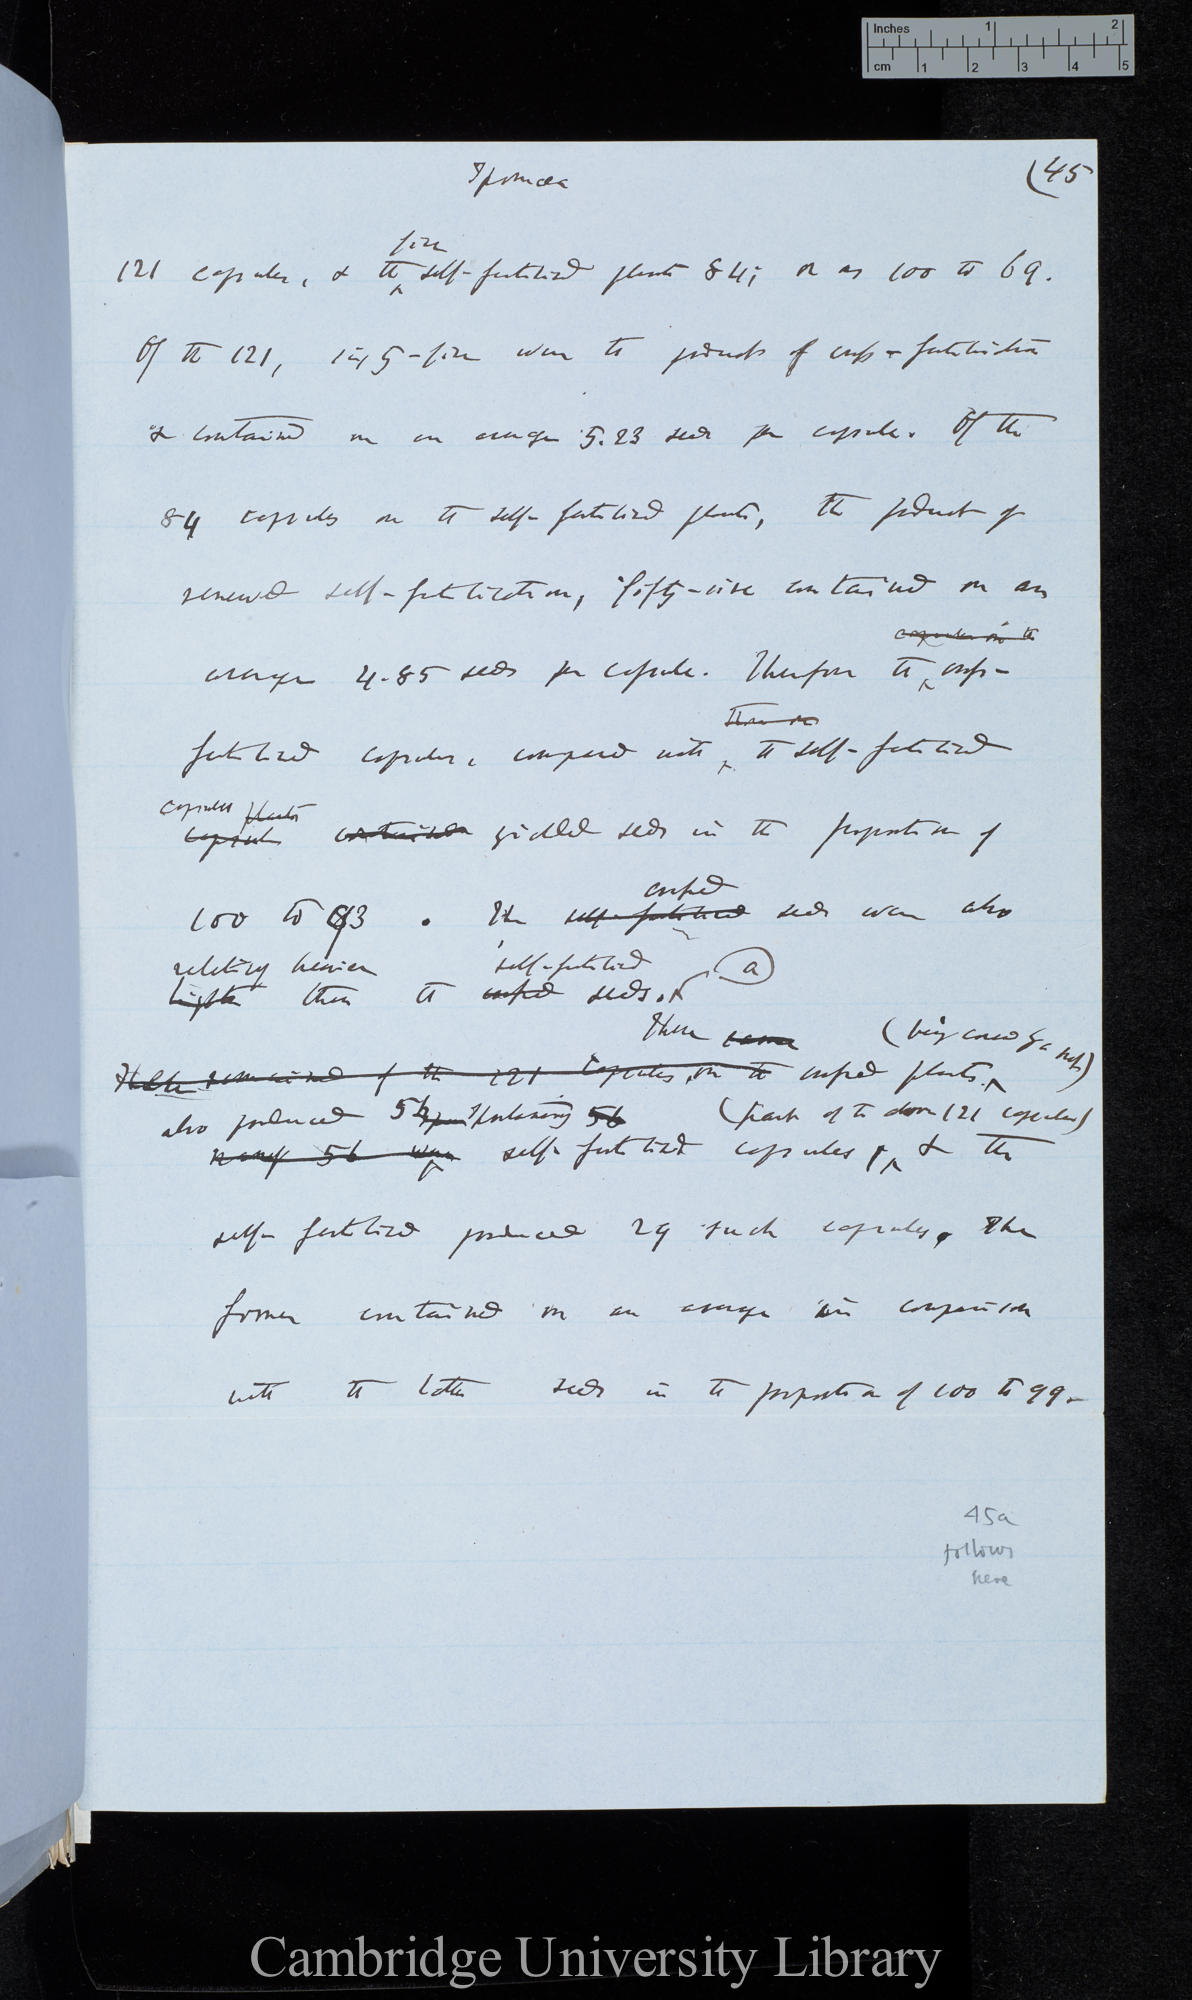 Inches 1 2
cm 1 2 3 4 5
Ipomœa
(45
five
121 capsules, & the self-fertilised plants 84; or as 100 to 69.
Of the 121, sixty-five were the products of cross-fertilisation
& contained on an average 5.23 seeds per capsule. Of the
84 capsules on the self-fertilised plants, the product of
renewed self-fertilisation, fifty-five contained on an
capsules on the
average 4.85 seeds per capsule. Therefore the cross-
fertilised capsules, compared with the self-fertilised
capsules plants
capsules contained yielded seeds in the proportion of
crossed
100 to 93. The self-fertilised seeds were also
relatively heavier self-fertilised (a)
lighter than the crossed seeds.
These same (being covered by a net)
There remained of the 121 capsules, on the crossed plants
also produced 56 spontaneously 56 (part of the above 121 capsules)
nearly 56 were self-fertilised capsules, & the
self-fertilised produced 29 such capsules. The
former contained on an average in comparison
with the latter seeds in the proportion of 100 to 99.
45a
follows
here
Cambridge University Library